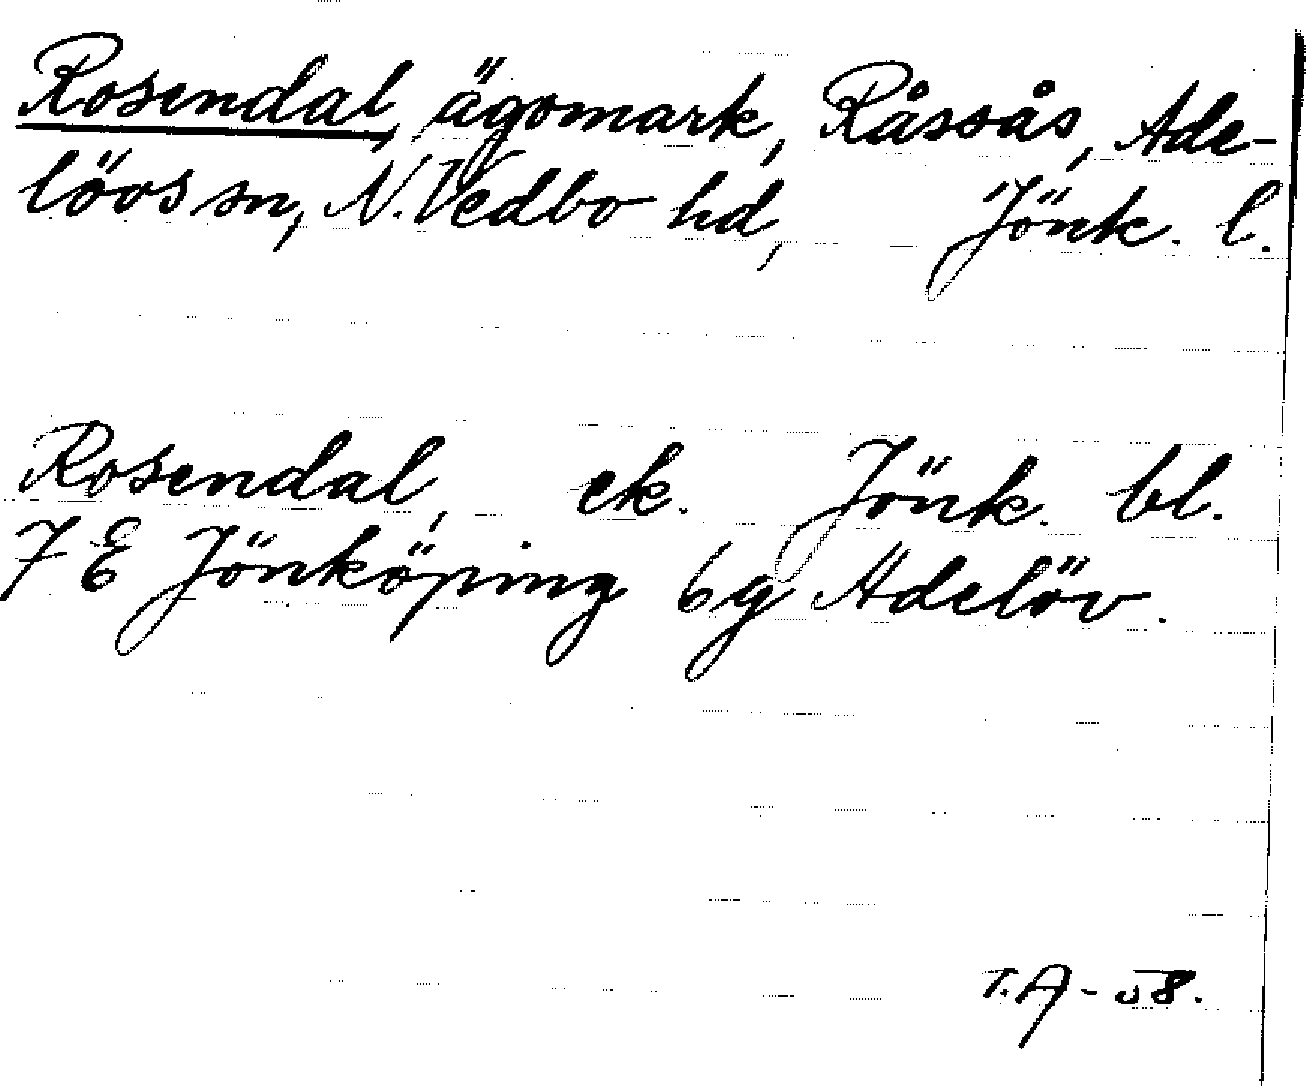 Rosendal, ägomark, Råssås, Ade-
lövs sn, N. Vedbo hd, Jönk. l.
Rosendal, ek. Jönk. bl.
7 E Jönköping 6 g Adelöv.
T.A - 58.